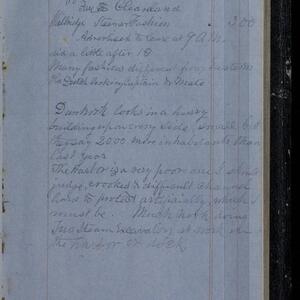 Cleanland
Steamer Fashion 2.00
Advertised to leave at 9 A.M.
did a little after 10
Many fashions different from Eastern
Dutch looking Captain & Mate
Dunkirk looks in a hurry
building up on every side, small but
they say 2000 more inhabitants than
last year
The harbor is a very poor one I should
judge, crooked & difficult channel
hard to protect artificially, which
must be. Much work doing
Two Steam Excavators at work in
the harbor or dock